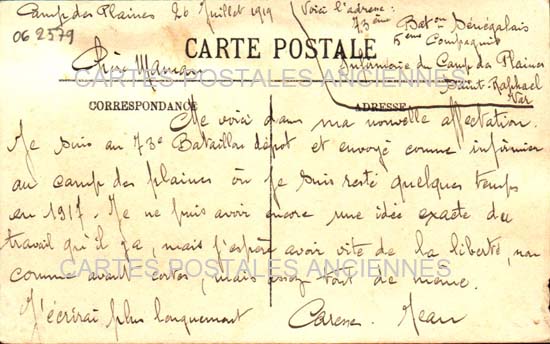 Camp des Plaines 26 Juillet 1919
Voici l'adresse:
73ème Baton Sénégalais
5ème Compagnie
Infirmerie du Camp des Plaines
Saint-Raphael
Var
06 2579
CARTE POSTALE
Chère Maman
CARTES POSTALES ANCIENNES
CORRESPONDANCE
ADRESSE
Me voici dans ma nouvelle affectation.
Je suis au 73e Bataillon dépôt et envoyé comme infirmier
au camp des plaines où je suis resté quelques temps
en 1917. Je ne puis avoir encore une idée exacte du
travail qu'il y a, mais j'espère avoir vite de la liberté, non
comme avant certes, mais assez tout de même.
CARTES POSTALES ANCIENNES
J'écrirai plus longuement Caresses. Jean